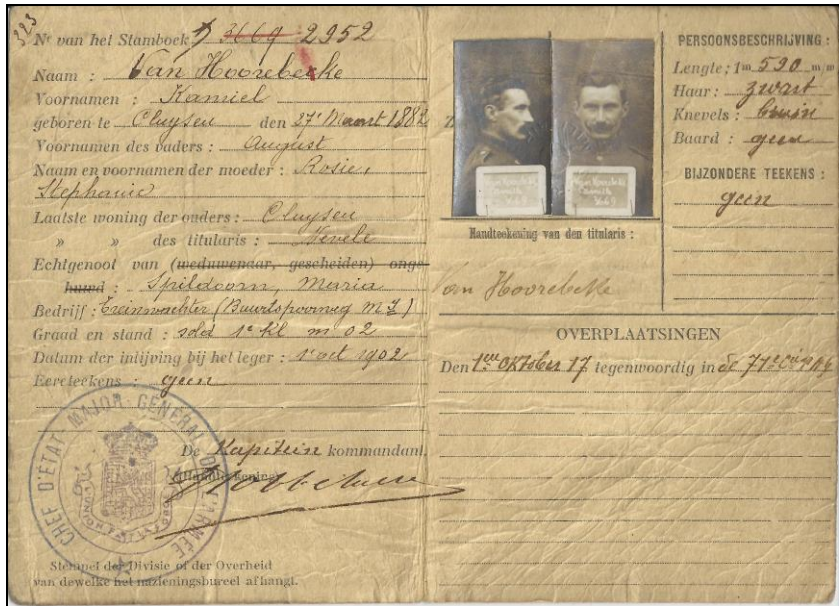 323
Nr van het Stamboek 3669 2952
Naam : Van Hoorebecke
Voornamen : Kamiel
geboren te Cluysen den 27e Maart 1882
Voornamen des vaders : August
Naam en voornamen der moeder : Rosie,
Stephanie
Laatste woning der ouders : Cluysen
» » des titularis : Nevele
Echtgenoot van (weduwenaar, gescheiden) onge-
huwd : Spildoorn, Maria
Bedrijf : Treinwachter (Buurtspoorweg
Graad en stand : sold 1e kl m 02
Datum der inlijving bij het leger : 1 oct 1902
Eereteekens : geen
De Kapitein kommandant,
(Handteekening)
CHEF D'ÉTAT MAJOR GÉNÉRAL DE L'ARMÉE
Stempel der Divisie of der Overheid
van dewelke het nazieningsbureel afhangt.
Handteekening van den titularis :
Van Hoorebeke
PERSOONSBESCHRIJVING :
Lengte; 1m 590 m/m
Haar : zwart
Knevels : bruin
Baard : geen
BIJZONDERE TEEKENS :
geen
OVERPLAATSINGEN
Den 1en Oktober 17 tegenwoordig in de 71e